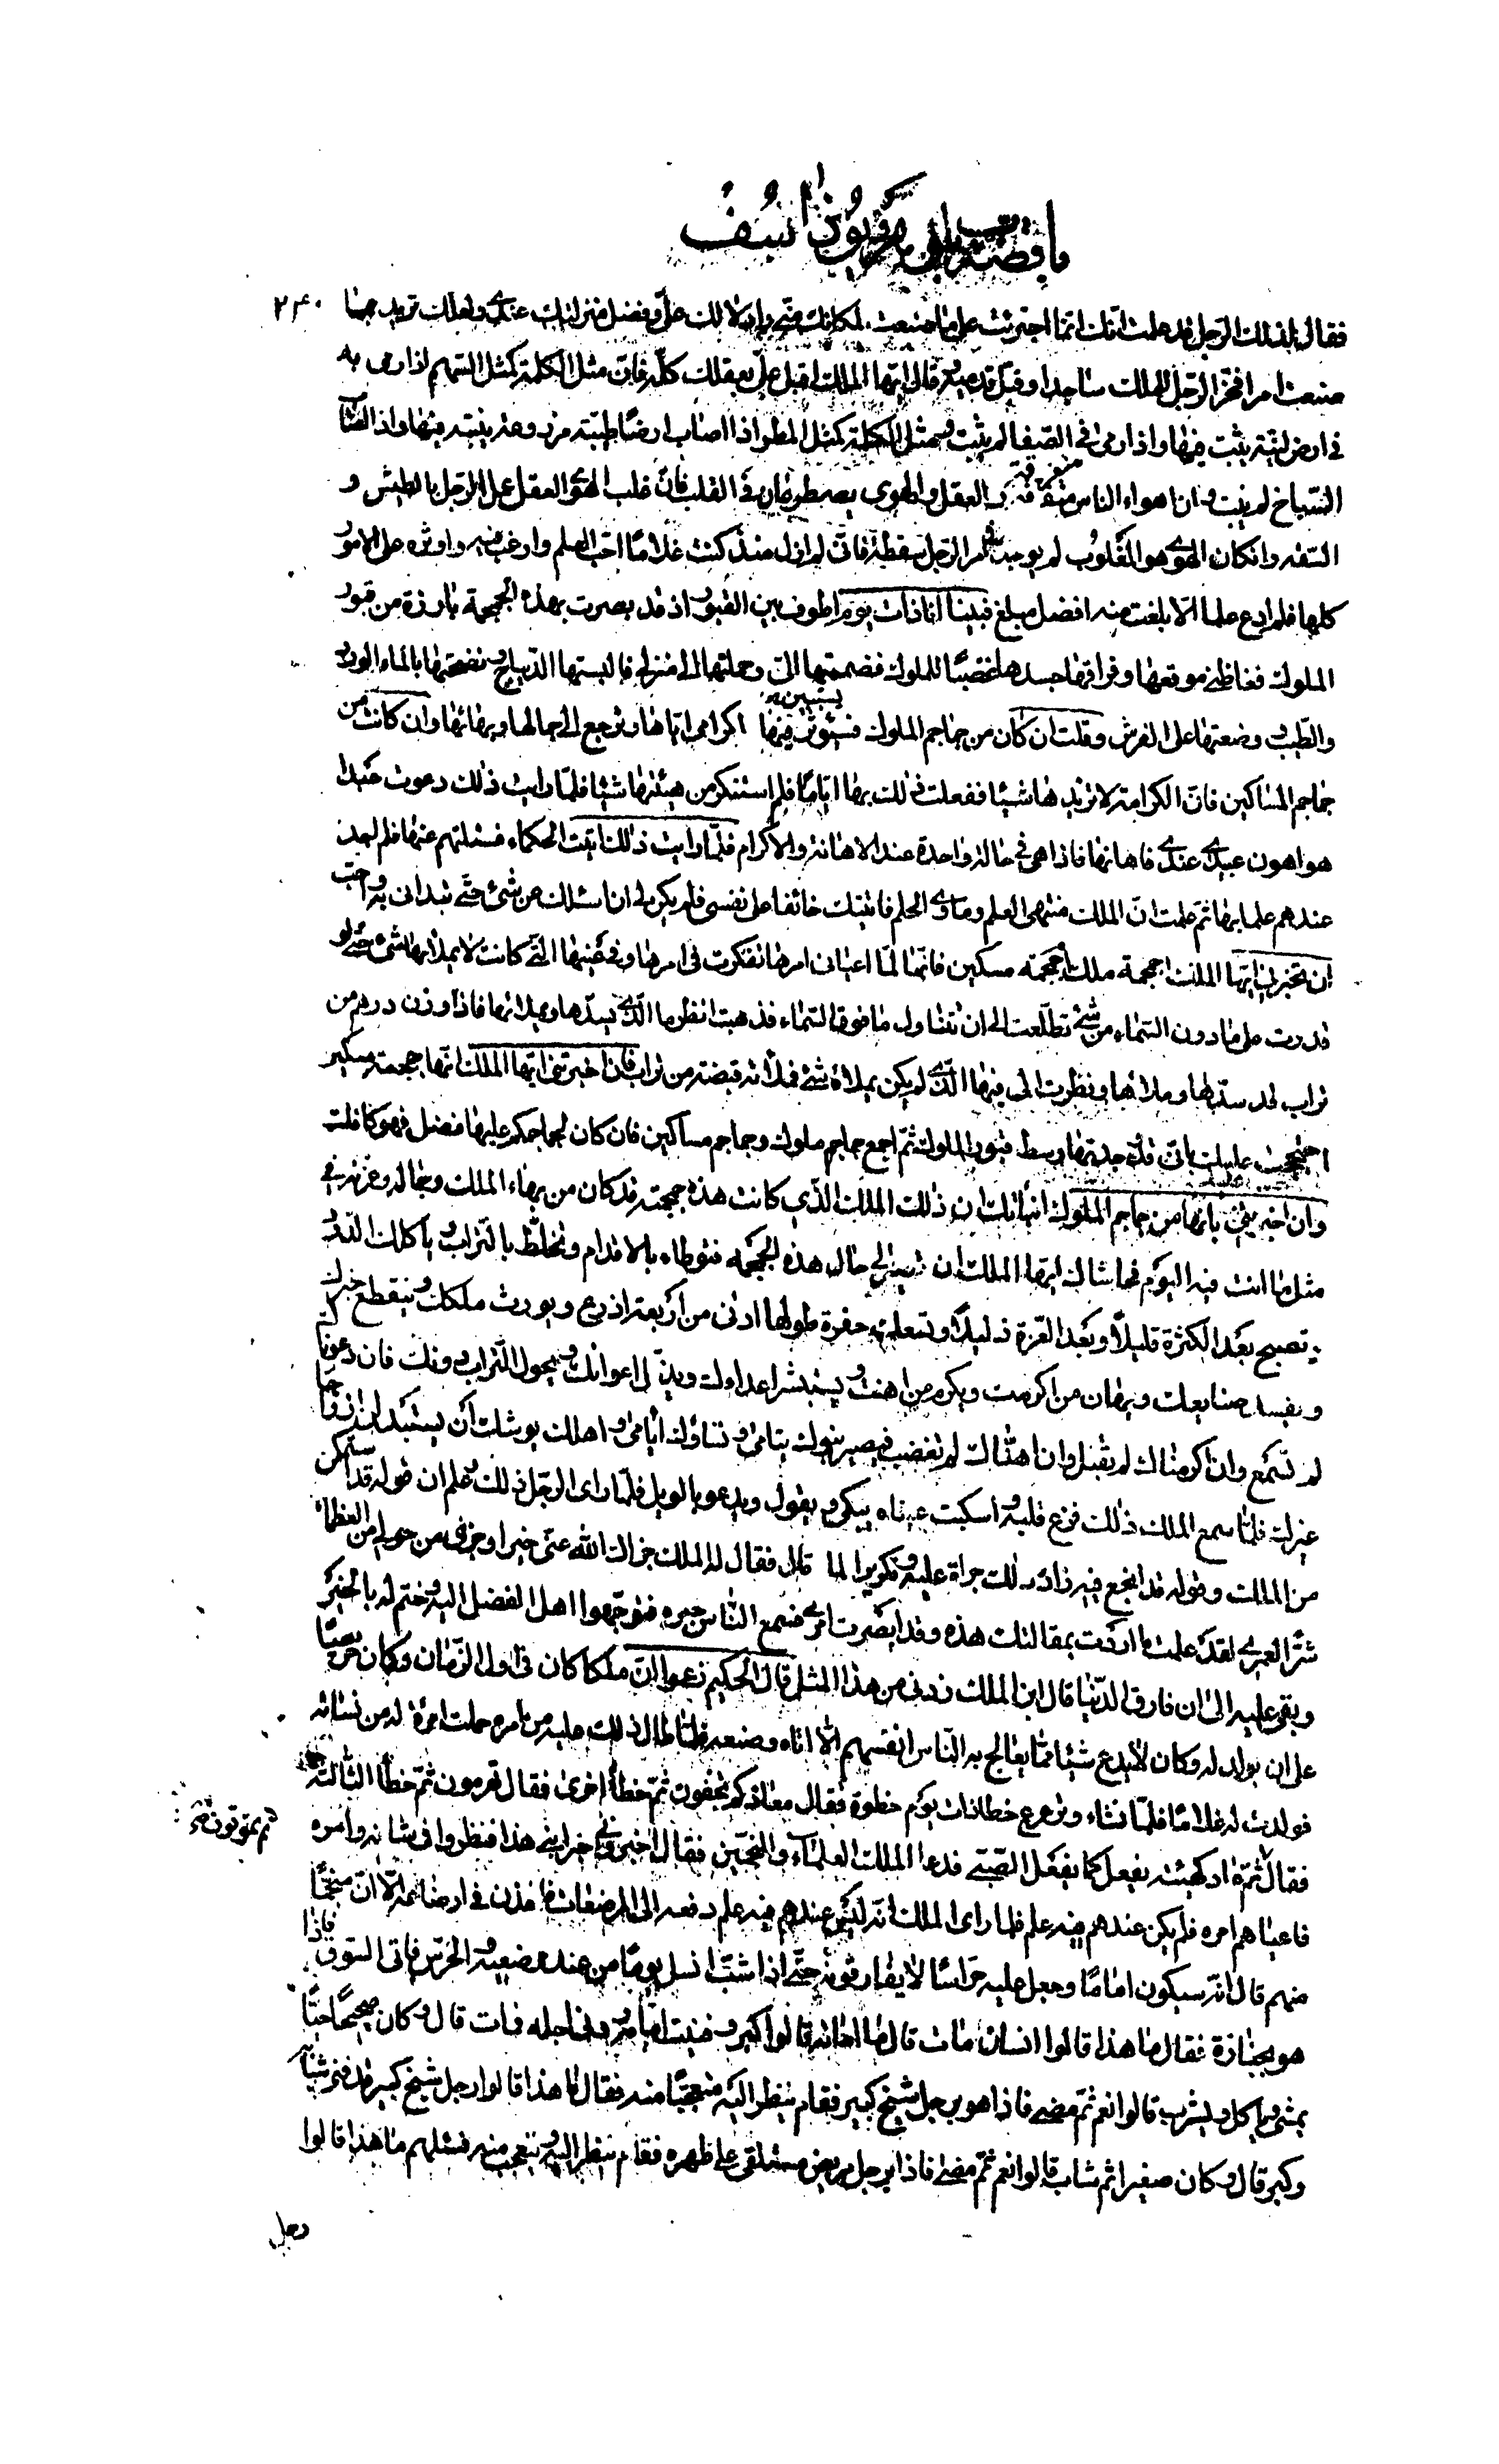 باب قصة بلوهر ويوذاسف
۲۴۰
فقال لذلك الرجل قد علمت انك انما اجترئت على ما صنعت لمكانك منى وادلالك على وفضل منزلتك عندى ولعلك تريد بما
صنعت امرا فخر الرجل للملك ساجدا وقبل قدميه وقال ايها الملك اقبل على بعقلك كله فان مثل الكلمة كمثل السهم اذا رمى به
فى ارض لينة يثبت فيها واذا رمى فى الصفا لم يثبت ومثل الكلمة كمثل المطر اذا اصاب ارضا طيبة مزروعة ينبت فيها واذا اصاب
السباخ لم ينبت وان اهواء الناس متفرقة والعقل والهوى يصطرعان فى القلب فان غلب الهوى العقل عمل الرجل بالطيش و
السفه وان كان الهوى هو المغلوب لم يوجد فى امر الرجل سقطة فانى لم ازل منذ كنت غلاما احب العلم وارغب فيه واوثره على الامور
كلها فلم ادع علما الا بلغت منه افضل مبلغ فبينا انا ذات يوم اطوف بين القبور اذ قد بصرت بهذه الجمجمة بارزة من قبور
الملوك فغاظنى موقعها وفراقها جسدها غضبا للملوك فضممتها الى وحملتها الى منزلى فالبستها الديباج ونضحتها بالماء الورد
والطيب ووضعتها على الفرش وقلت ان كان من جماجم الملوك فسيؤثر فيها اكرامى اياها وترجع الى جمالها وبهائها وان كانت من
جماجم المساكين فان الكرامة لا تزيدها شيئا ففعلت ذلك بها اياما فلم استنكر من هيئتها شيئا فلما رايت ذلك دعوت عبدا
هو اهون عبيدى عندى فاهانها فاذا هى فى حالة واحدة عند الاهانة والاكرام فلما رايت ذلك اتيت الحكماء فسئلتهم عنها فلم اجد
عندهم علما بها ثم علمت ان الملك منتهى العلم وماوى الحلم فاتيتك خائفا على نفسى فلم يكن لى ان اسئلك عن شئ حتى تبدانى به واحب
ان تخبرنى ايها الملك اجمجمة ملك ام جمجمة مسكين فانها لما اعيانى امرها تفكرت فى امرها وفى عينها التى كانت لا يملاها شئ حتى لو
قدرت على ما دون السماء من شئ تطلعت الى ان تتناول ما فوق السماء فذهبت انظر ما الذى يسدها ويملاها فاذا وزن درهم من
تراب قد سدها وملاها ونظرت الى فيها الذى لم يكن يملاه شئ فملاته قبضة من تراب فان اخبرتنى ايها الملك انها جمجمة مسكين
احتججت عليك بانى قد وجدتها وسط قبور الملوك ثم اجمع جماجم ملوك وجماجم مساكين فان كان لجماجمكم عليها فضل فهو كما قلت
وان اخبرتنى بانها من جماجم الملوك انبأتك ان ذلك الملك الذى كانت هذه جمجمته قد كان من بهاء الملك وجماله وعزته فى
مثل ما انت فيه اليوم فحاشاك ايها الملك ان تصير الى حال هذه الجمجمه فتوطاء بالاقدام وتخلط بالتراب وياكلك الدود
و تصبح بعد الكثرة قليلا وبعد العزة ذليلا وتسعك حفرة طولها ادنى من اربعة اذرع ويورث ملكك وينقطع خبرك
ويفسد صنايعك ويهان من اكرمت ويكرم من اهنت ويستبشر اعداؤك ويذل اعوانك ويحول التراب دونك فان دعوناك
لم تسمع وان اكرمناك لم تقبل وان اهناك لم تغضب فيصير بنوك يتامى ونساؤك ايامى واهلك يوشك ان يستبدلن ازواجا
غيرك فلما سمع الملك ذلك فزع قلبه واسكبت عيناه يبكى ويقول ويدعو بالويل فلما راى الرجل ذلك علم ان قوله قد استمكن
من الملك وقوله قد انجع فيه زاده ذلك جراة عليه وتكريرا لما قال فقال له الملك جزاك الله عنى خيرا وجزى من حولى من العظماء
شرا لعمرى لقد علمت ما اردت بمقالتك هذه وقد ابصرت امرى فسمع الناس خبره فتوجهوا اهل الفضل اليه وختم له بالخير
وبقى عليه الى ان فارق الدنيا قال ابن الملك زدنى من هذا المثل قال الحكيم زعموا ان ملكا كان فى اول الزمان وكان حريصا
على ان يولد له وكان لا يدع شيئا مما يعالج به الناس انفسهم الا اتاه وصنعه فلما طال ذلك عليه من امره حملت امرءة له من نسائه
فولدت له غلاما فلما نشاء وترعرع خطا ذات يوم خطوة فقال معادكم تجفون ثم خطا اخرى فقال تهرمون ثم خطا الثالثة
ثم تموتون
فقال ثم عاد كهيئته يفعل كما يفعل الصبى فدعا الملك العلماء والمنجمين فقال اخبرونى خبر ابنى هذا فنظروا فى شانه وامره
فاعياهم امره فلم يكن عندهم فيه علم فلما راى الملك انه ليس عندهم فيه علم دفعه الى المرضعات فاخذن فى ارضاعه الا ان منجما
منهم قال انه سيكون اماما وجعل عليه حراسا لا يفارقونه حتى اذا شب انسل يوما من عند مرضعيه والحرس فاتى السوق فاذا
هو بجنازة فقال ما هذا قالوا انسان مات قال ما اماته قالوا كبر وفنيت ايامه ودنى اجله فمات قال وكان صحيحا حيا
يمشى وياكل ويشرب قالوا نعم ثم مضى فاذا هو برجل شيخ كبير فقام ينظر اليه متعجبا منه فقال ما هذا قالوا رجل شيخ كبير قد فنى شبابه
وكبر قال وكان صغيرا ثم شاب قالوا نعم ثم مضى فاذا برجل مريض مستلقى على ظهره فقام ينظر اليه ويتعجب منه فسئلهم ما هذا قالوا
رجل